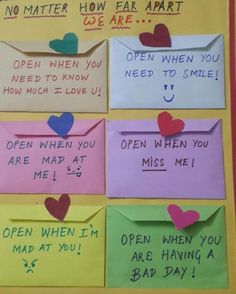 NO MATTER HOW FAR APART
WE ARE...
OPEN WHEN YOU
NEED TO KNOW
HOW MUCH I LOVE U!
OPEN WHEN YOU
NEED TO SMILE!
OPEN WHEN YOU
ARE MAD AT
ME!
OPEN WHEN YOU
MISS ME!
OPEN WHEN I'M
MAD AT YOU!
OPEN WHEN
YOU ARE
HAVING A
BAD DAY!